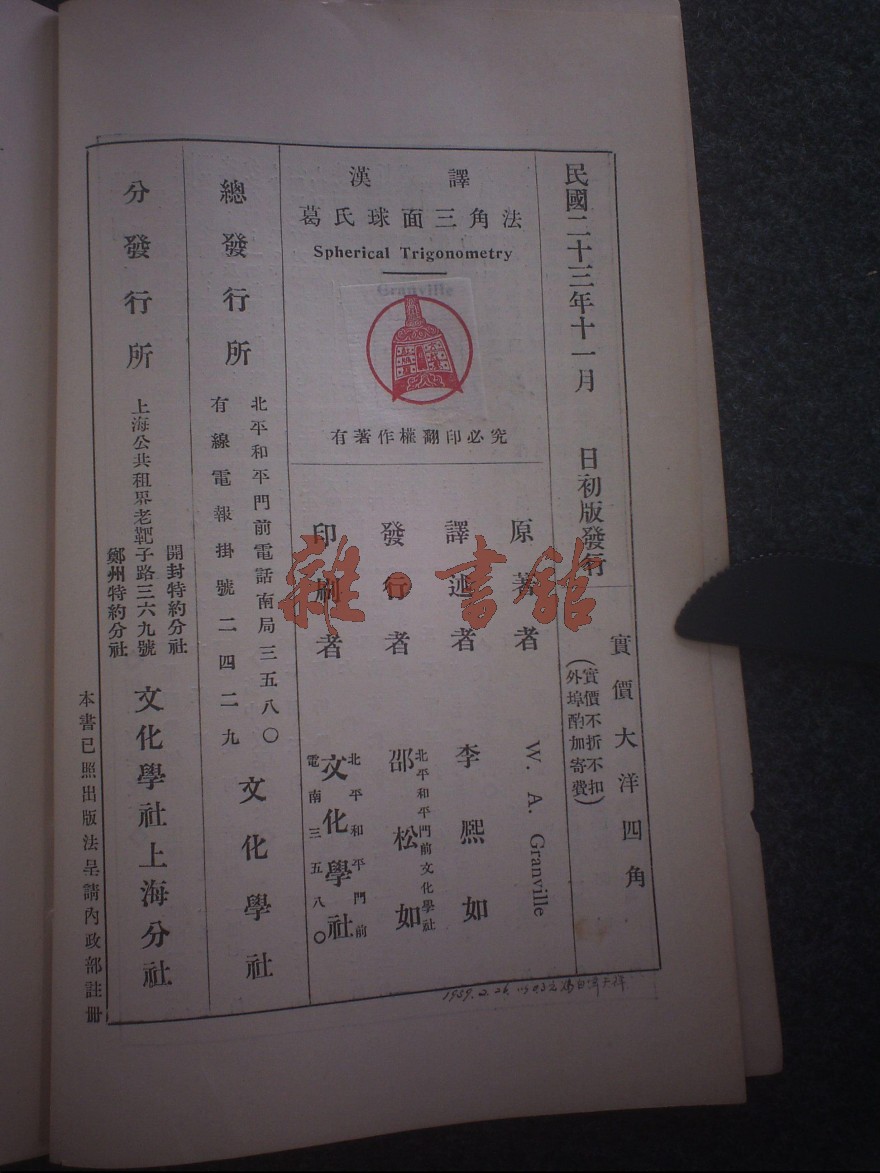 民國二十三年十一月　日初版發行
實價大洋四角
(實價不折不扣
外埠酌加寄費)
漢譯
葛氏球面三角法
Spherical Trigonometry
Granville
有著作權翻印必究
原著者 W. A. Granville
譯述者 李熙如
發行者 邵松如
北平和平門前文化學社
印刷者 文化學社
北平和平門前
電南三五八〇
總發行所
北平和平門前電話南局三五八〇
有線電報掛號二四二九
文化學社
分發行所
開封特約分社
上海公共租界老靶子路三六九號
鄭州特約分社
文化學社上海分社
本書已照出版法呈請內政部註冊
1959.2.26.
雜·書館